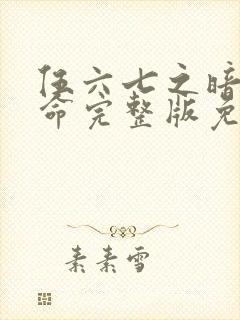 伍六七之暗
命完整版免
素素雪